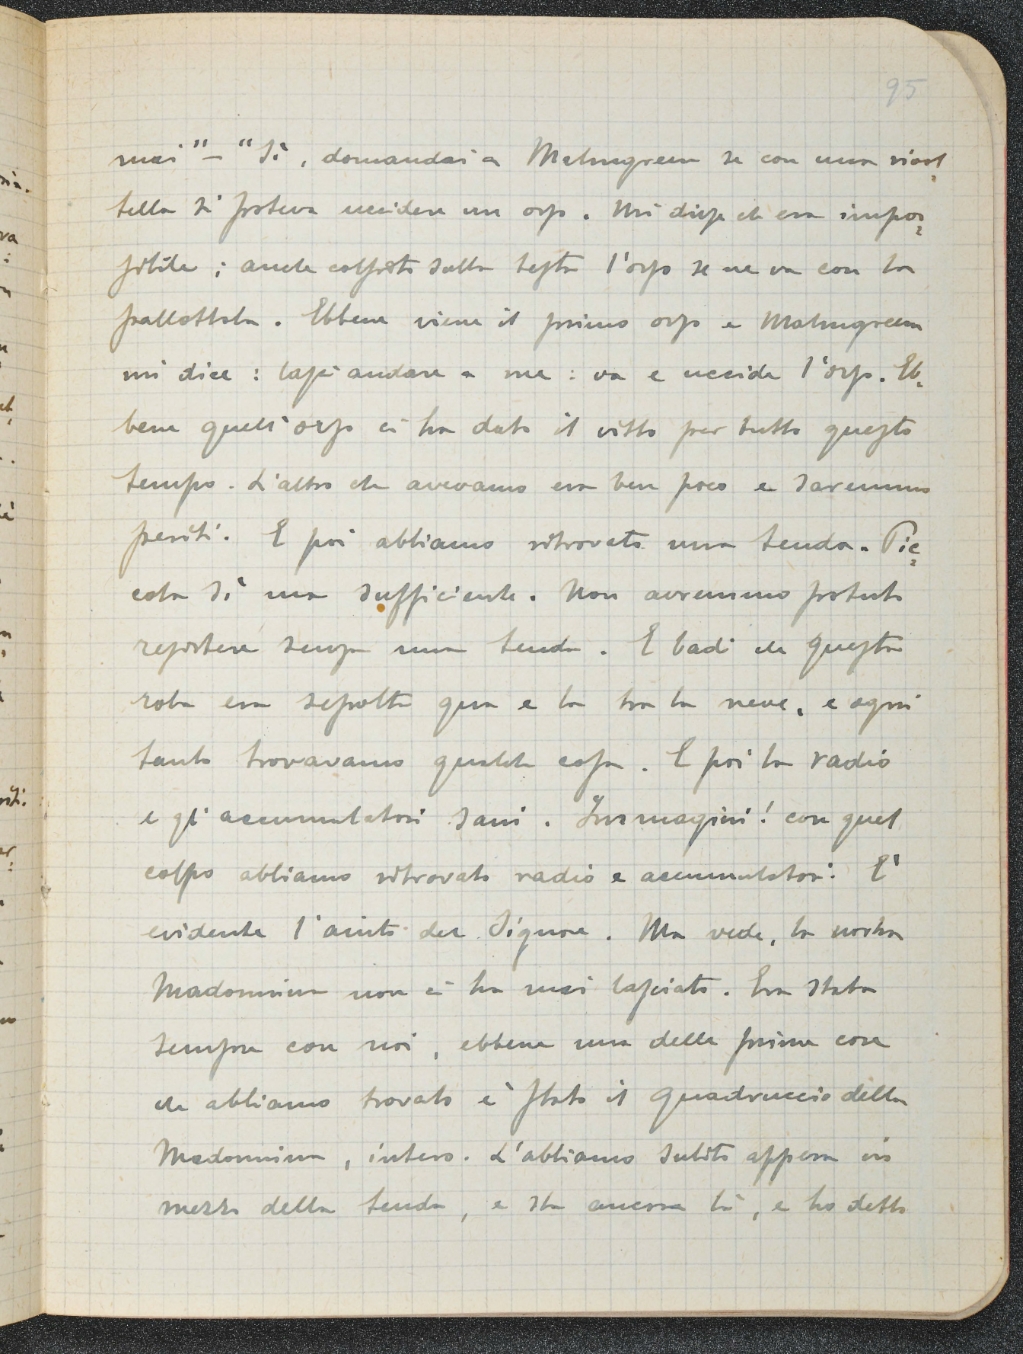 95
mai" – "Sì, domandai a Malmgreen se con una rivol=
tella si poteva uccidere un orso. Mi disse che era impos=
sibile; anche colpito sulla testa l'orso se ne va con la
pallottola. Ebbene viene il primo orso e Malmgreen
mi dice: lasci andare a me: va e uccide l'orso. Eb=
bene quell'orso ci ha dato il vitto per tutto questo
tempo. L'altro che avevamo era ben poco e saremmo
periti. E poi abbiamo ritrovato una tenda. Pic=
cola sì ma sufficiente. Non avremmo potuto
resistere senza una tenda. E badi che questa
roba era sepolta qua e la tra la neve, e ogni
tanto trovavamo qualche cosa. E poi la radio
e gli accumulatori sani. Immagini! con quel
colpo abbiamo ritrovato radio e accumulatori. E'
evidente l'aiuto del Signore. Ma vede, la nostra
Madonnina non ci ha mai lasciato. Era stata
sempre con noi, ebbene una delle prime cose
che abbiamo trovato è stato il quadruccio della
Madonnina, intero. L'abbiamo subito appesa in
mezzo della tenda, e sta ancora là, e ho detto